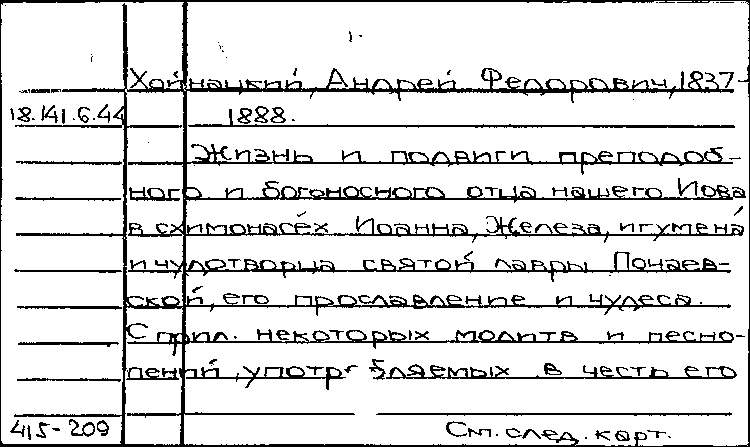 Хойнацкий, Андрей Федорович, 1837-
18.141.6.44 1888.
Жизнь и подвиги преподоб-
ного и богоносного отца нашего Иова
в схимонасех Иоанна, Железа, игумена
и чудотворца святой лавры Почаев-
ской, его прославление и чудеса.
С прил. некоторых молитв и песно-
пений, употребляемых в честь его
415-209 См. след. карт.